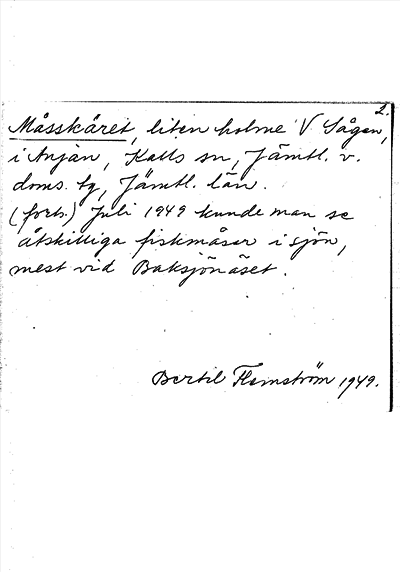 2.
Måsskäret, liten holme V Sågen,
i Anjan, Kalls sn, Jämtl. v.
doms. tg, Jämtl. län.
(forts.) Juli 1949 kunde man se
åtskilliga fiskmåsar i sjön,
mest vid Baksjönäset.
Bertil Flemström 1949.